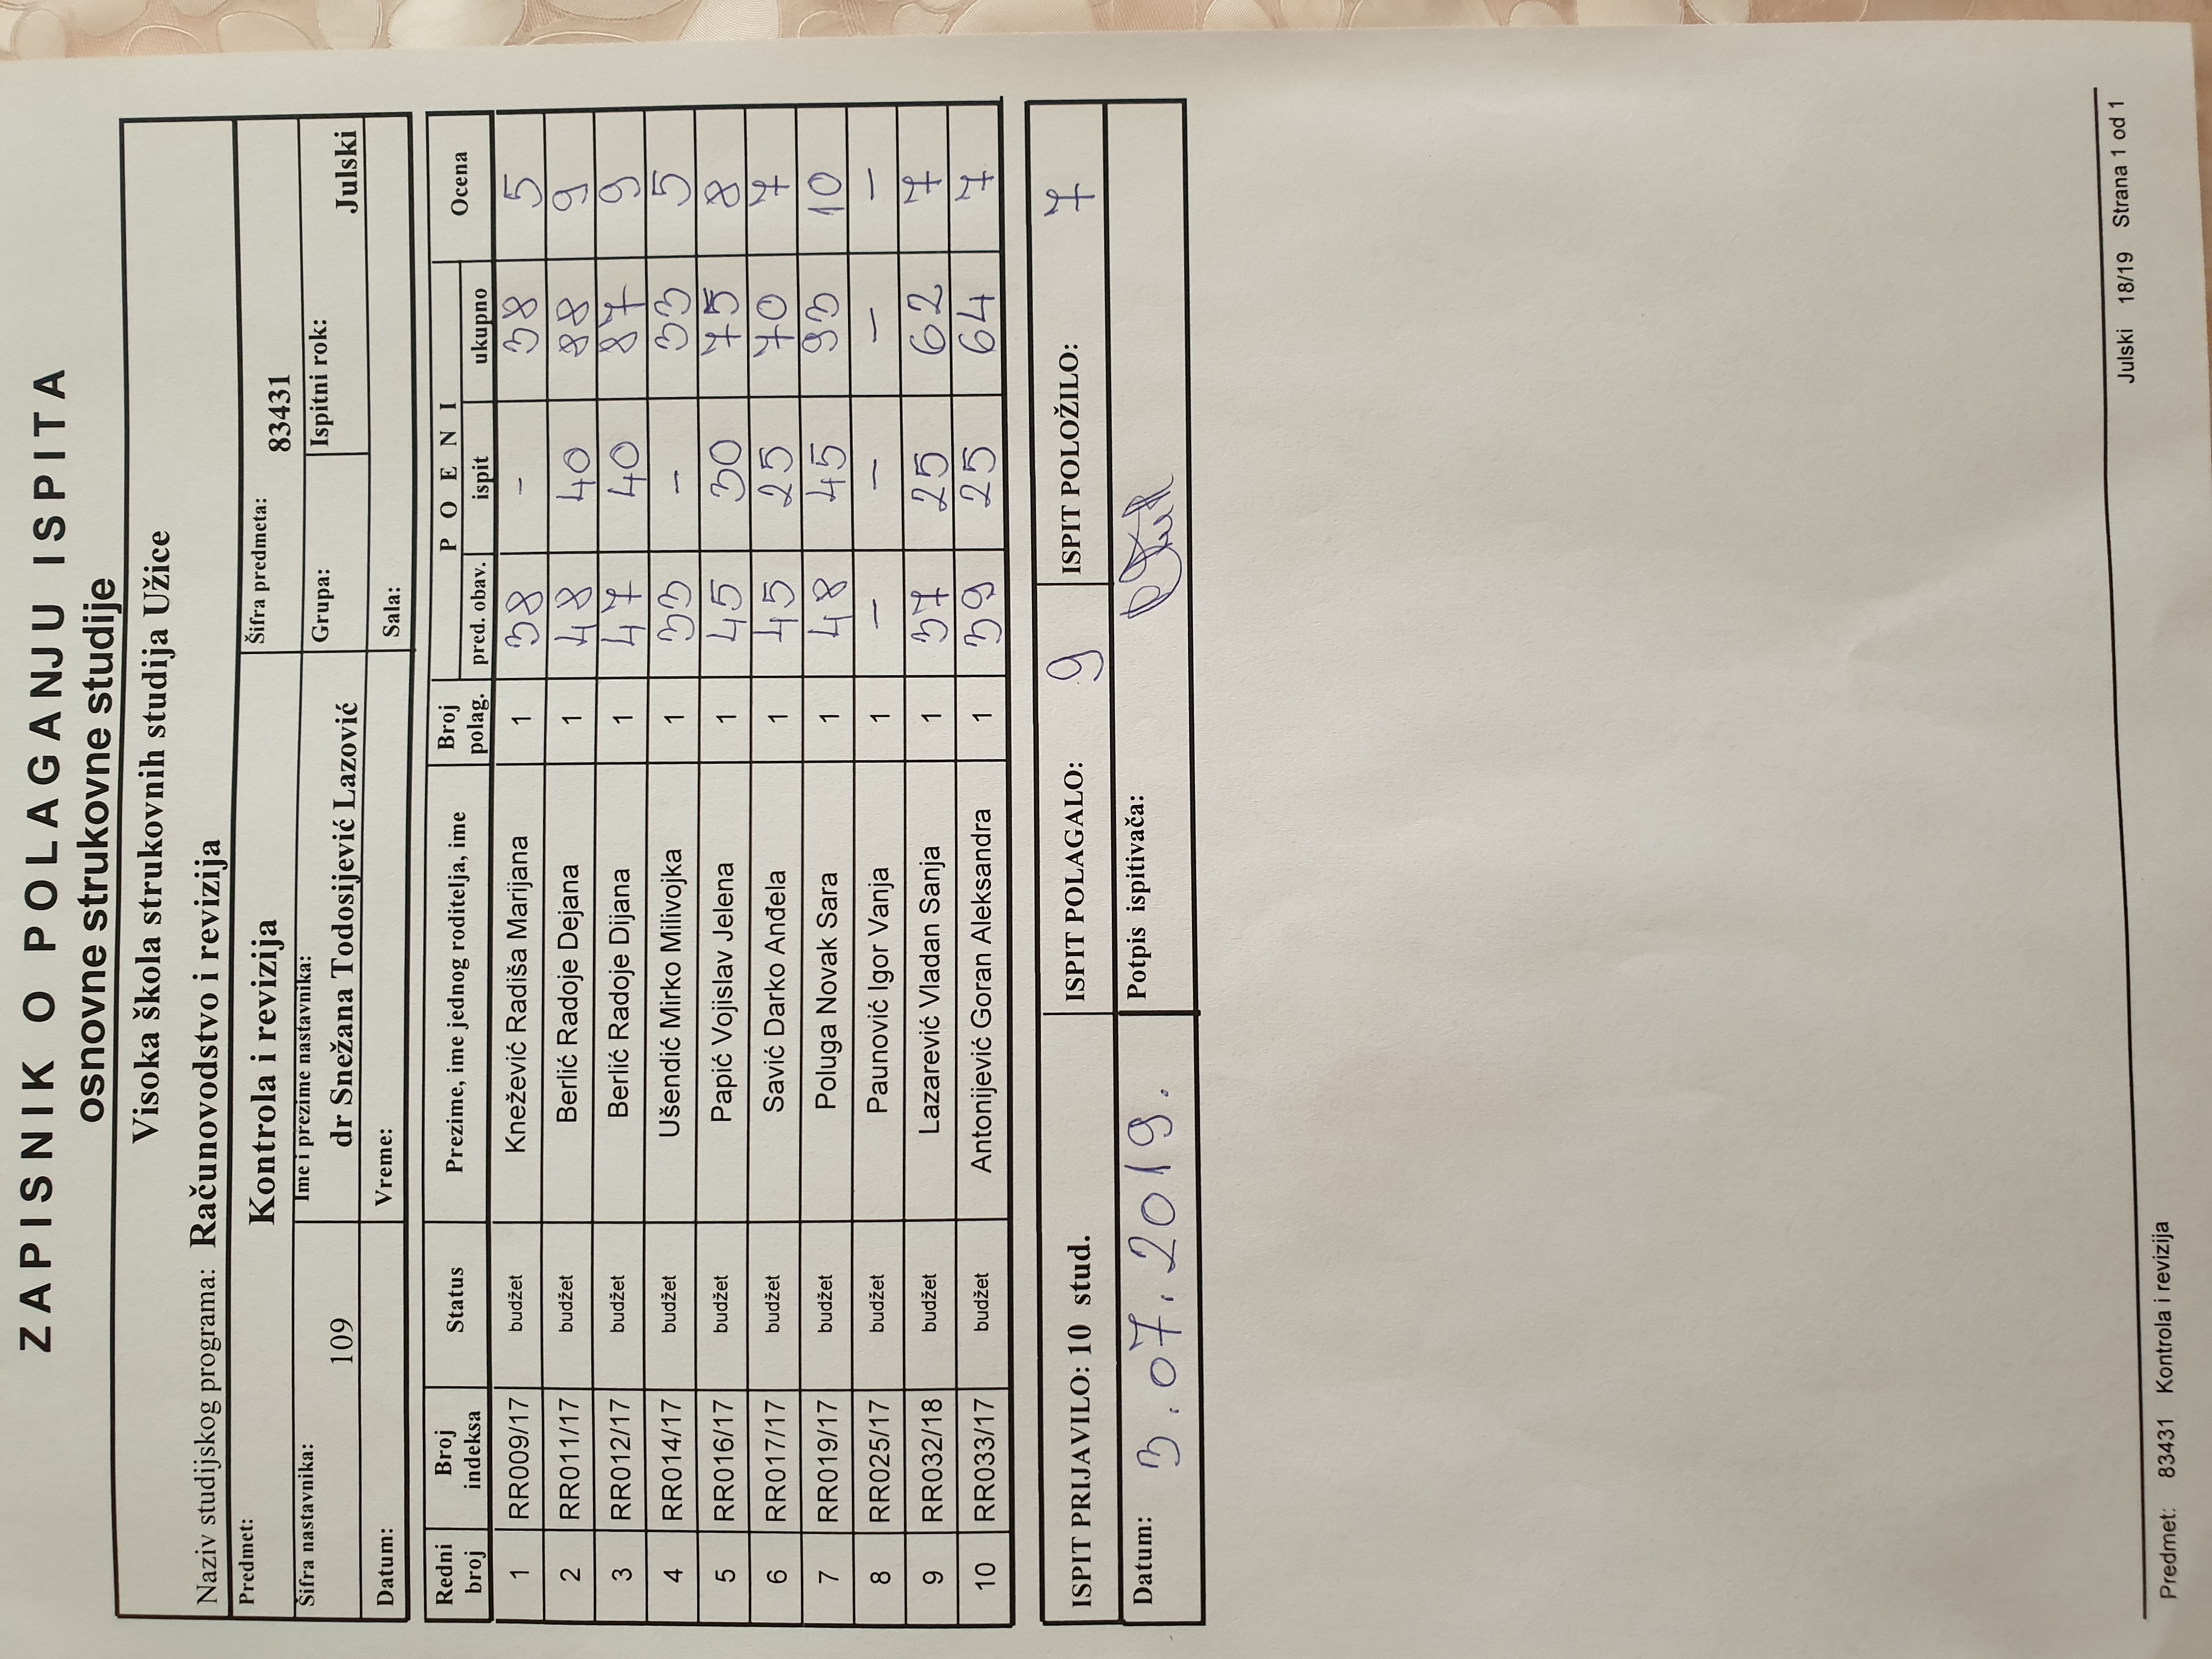 ZAPISNIK O POLAGANJU ISPITA
osnovne strukovne studije
Visoka škola strukovnih studija Užice
Naziv studijskog programa: Računovodstvo i revizija
Predmet: Kontrola i revizija Šifra predmeta: 83431
Šifra nastavnika: 109 Ime i prezime nastavnika: dr Snežana Todosijević Lazović Grupa: Ispitni rok: Julski
Datum: Vreme: Sala:
Redni broj Broj indeksa Status Prezime, ime jednog roditelja, ime Broj polag. POENI pred. obav. ispit ukupno Ocena
1 RR009/17 budžet Knežević Radiša Marijana 1 38 - 38 5
2 RR011/17 budžet Berlić Radoje Dejana 1 48 40 88 9
3 RR012/17 budžet Berlić Radoje Dijana 1 47 40 87 9
4 RR014/17 budžet Ušendić Mirko Milivojka 1 33 - 33 5
5 RR016/17 budžet Papić Vojislav Jelena 1 45 30 75 8
6 RR017/17 budžet Savić Darko Anđela 1 45 25 70 7
7 RR019/17 budžet Poluga Novak Sara 1 48 45 93 10
8 RR025/17 budžet Paunović Igor Vanja 1 - - - -
9 RR032/18 budžet Lazarević Vladan Sanja 1 37 25 62 7
10 RR033/17 budžet Antonijević Goran Aleksandra 1 39 25 64 7
ISPIT PRIJAVILO: 10 stud. ISPIT POLAGALO: 9 ISPIT POLOŽILO: 7
Datum: 3.07.2019. Potpis ispitivača:
Predmet: 83431 Kontrola i revizija Julski 18/19 Strana 1 od 1